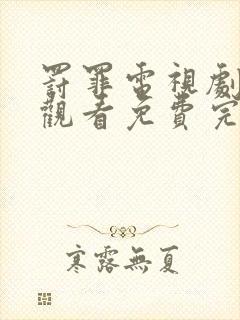 罸罪電視劇
觀看免費完
寒露無夏